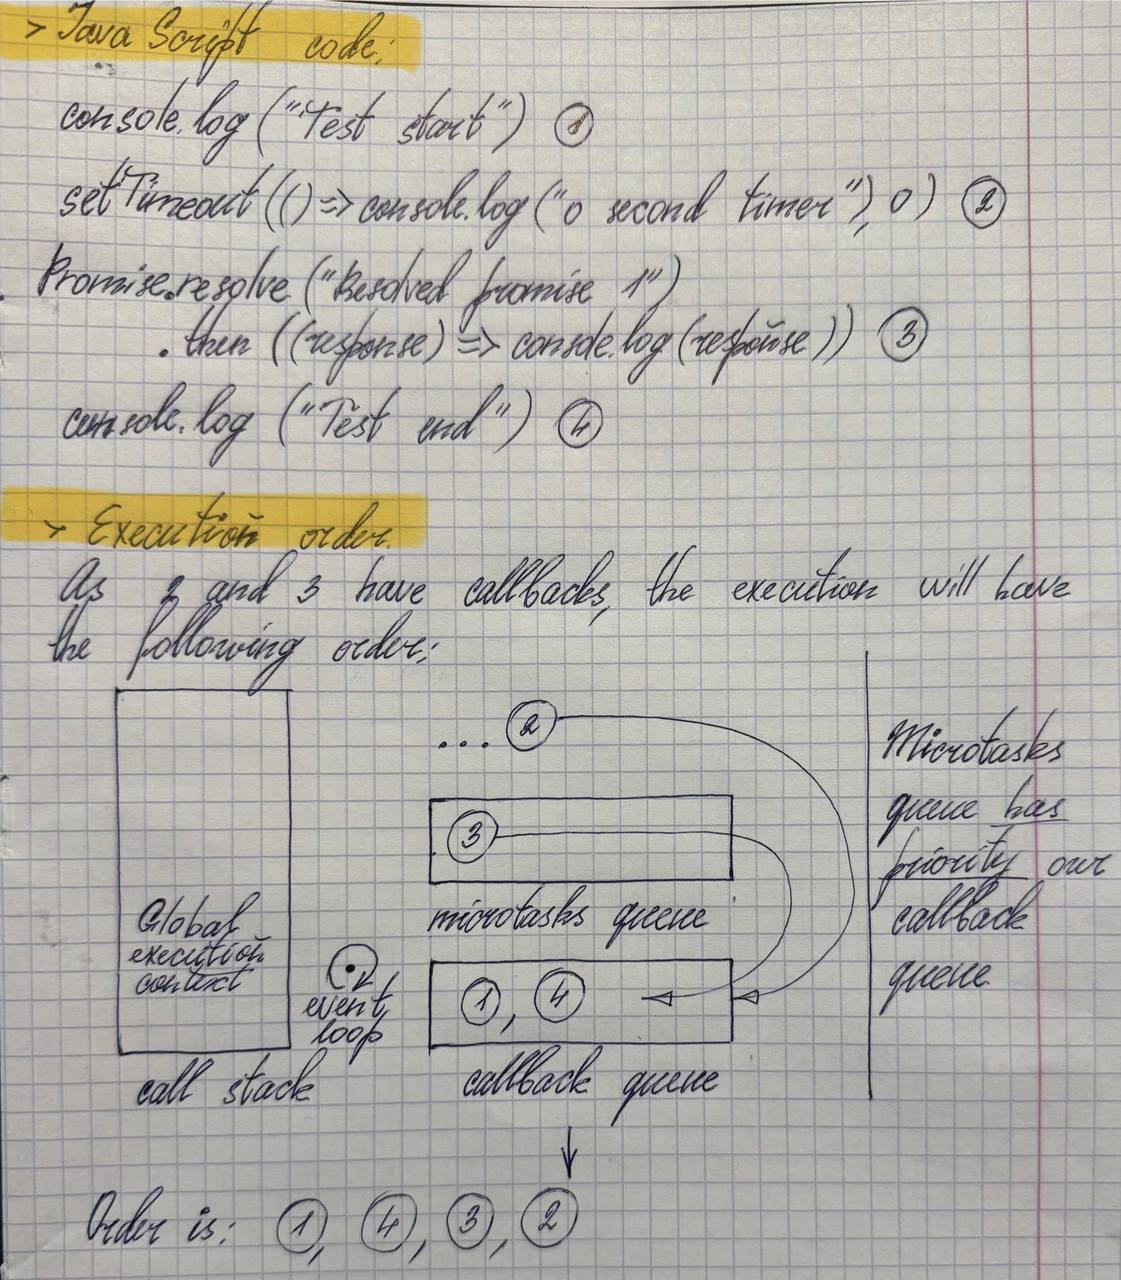 > Java Script code:
console.log ("Test start") ①
setTimeout (() => console.log ("0 second timer"), 0) ②
Promise.resolve ("Resolved promise 1")
.then ((response) => console.log (response)) ③
console.log ("Test end") ④
> Execution order.
As 2 and 3 have callbacks, the execution will have
the following order:
... ②
③
microtasks queue
Global
execution
context
event
loop
①, ④
call stack
callback queue
Microtasks
queue has
priority our
callback
queue
Order is: ①, ④, ③, ②